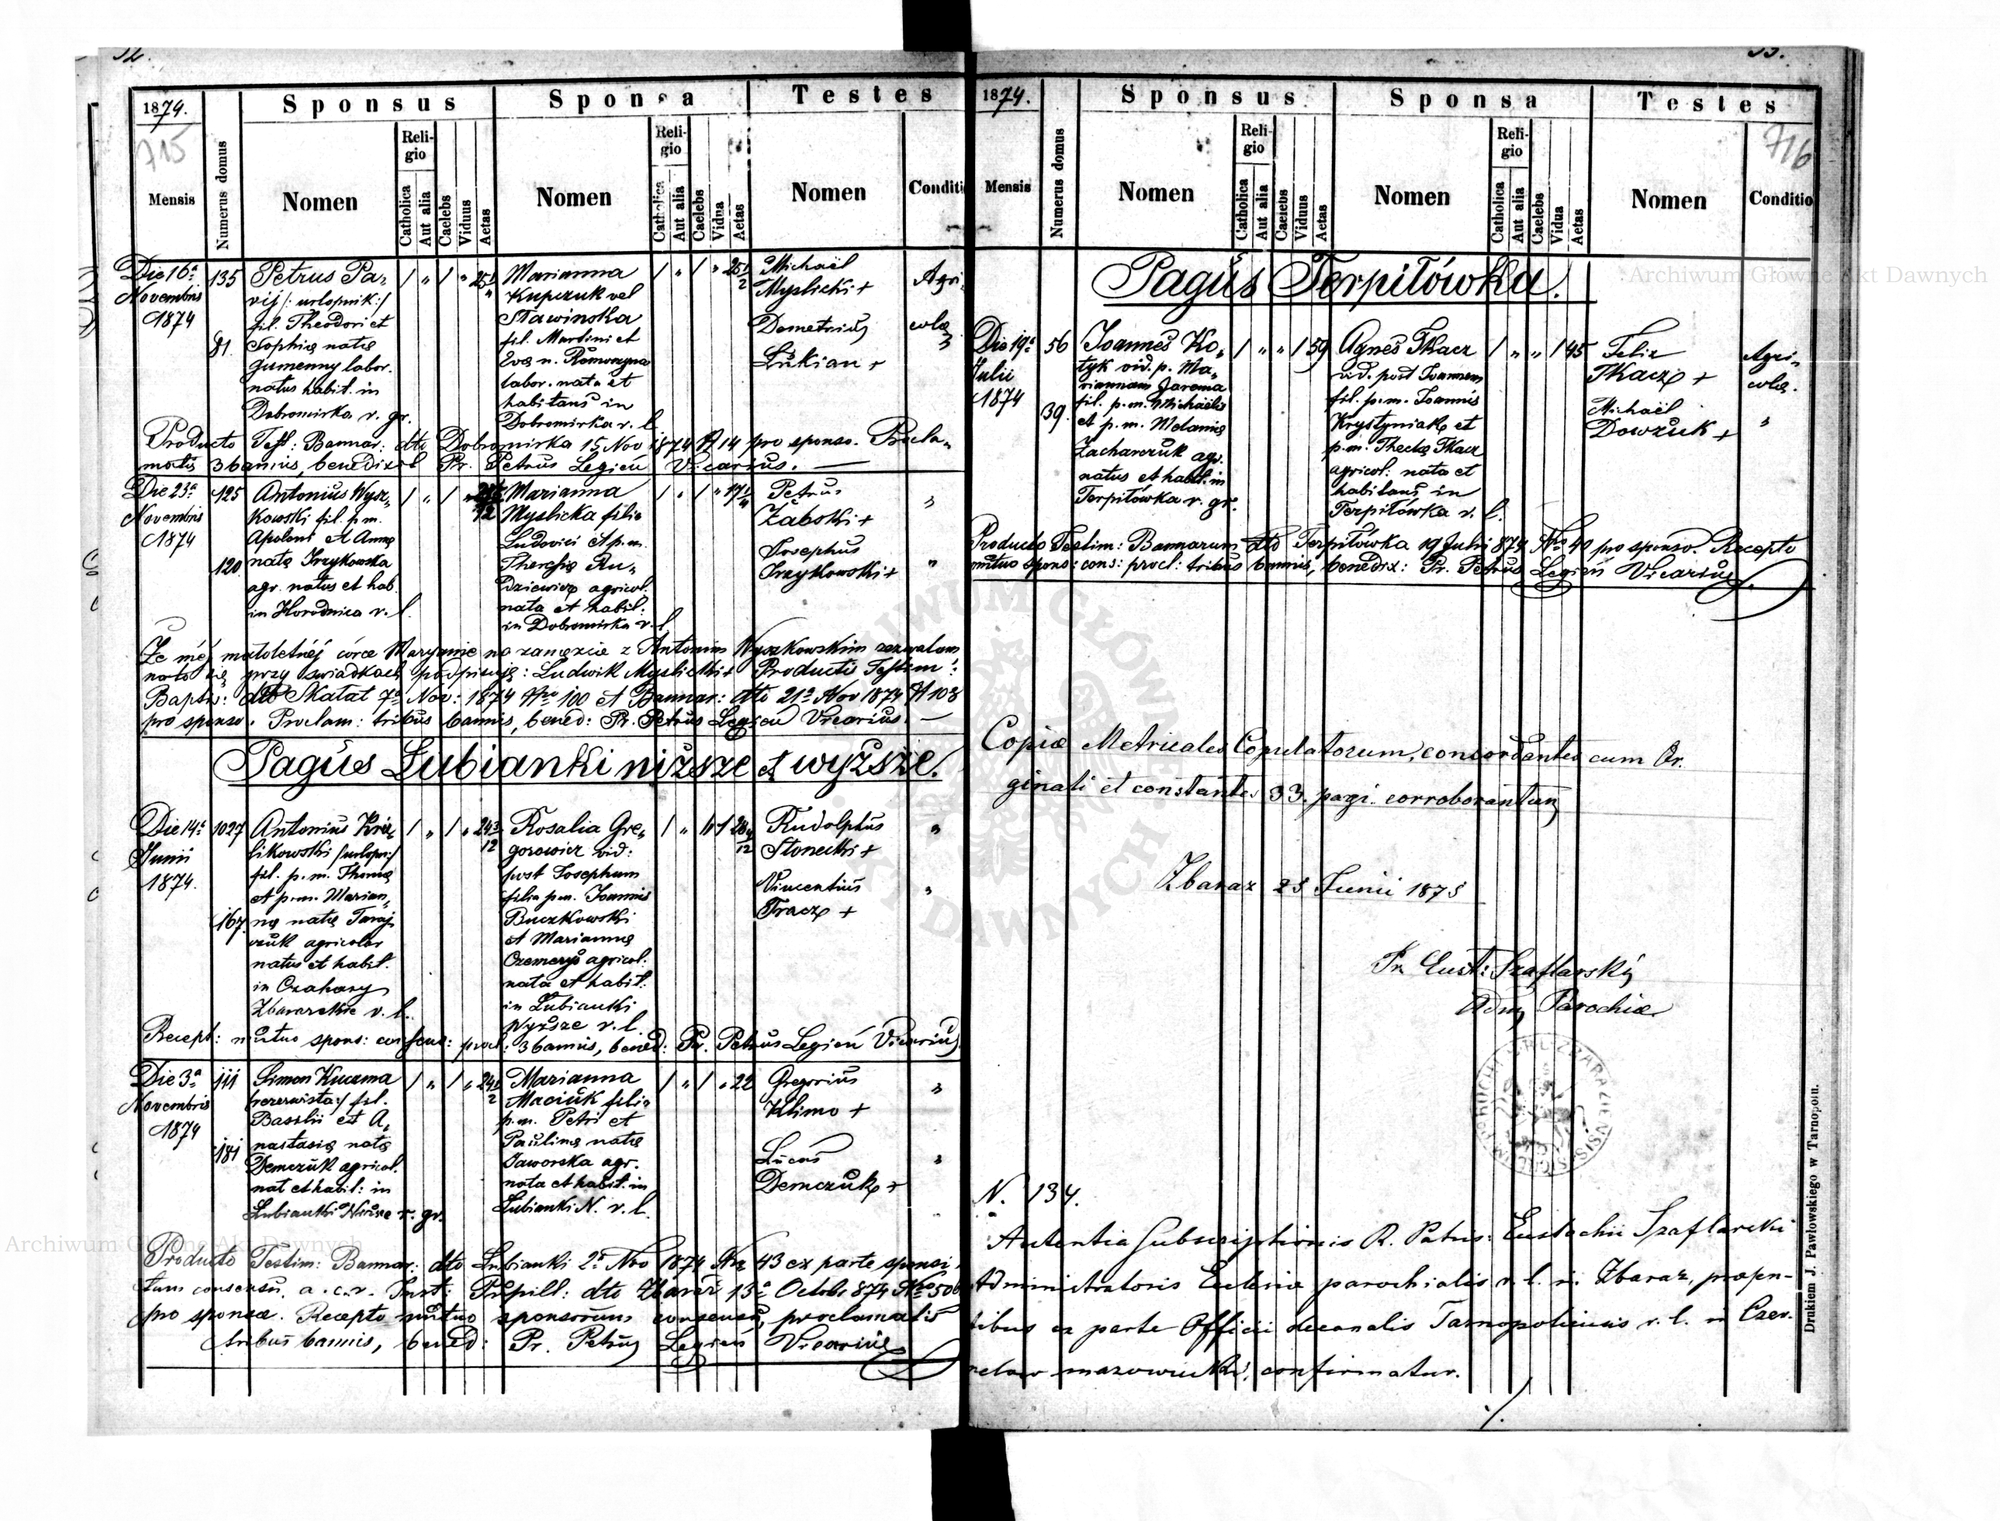 32.
1874.
715
Mensis
Numerus domus
Sponsus
Nomen
Religio
Catholica
Aut alia
Caelebs
Viduus
Aetas
Sponsa
Nomen
Religio
Catholica
Aut alia
Caelebs
Vidua
Aetas
Testes
Nomen
Conditio
Die 16a
Novembris
1874
135
81.
Petrus Pa-
vij /: urlopnik:/
fil. Theodori et
Sophiæ natæ
Gumenny labor.
natus habit. in
Dobromirka r. gr.
Marianna
Kupczuk vel
Stawinska
fil. Martini et
Evæ n.
labor. nata et
habitans in
Dobromirka r. l.
Michaël
Myslicki +
Demetrius
Lukian +
Agri-
colæ
Producto Test: Bannar: dto Dobromirka 15 Nov 1874 N 14 pro sponso. Procla-
matis 3 bannis, benedixit Pr. Petrus Legień Vicarius. —
Die 23a
Novembris
1874
125
120
Antonius Wysz-
kowski fil. p.m.
Apoloni et Annæ
natæ Irzykowska
agr. natus et hab.
in Horodnica r. l.
Marianna
Myslicka filia
Ludovici et p.m.
Theresiæ Ru-
dziewicz agricol.
nata et habit.
in Dobromirka r. l.
17
Petrus
Żabski +
Josephus
Irzykowski +
Że méj małoletnéj córce Maryannie na zamęzcie z Antonim Wyszkowskim zezwalam
na to się przy świadkach podpisuję: Ludwik Myslicki + Producto Testim:
Baptis: dto Skałat 7a Nov: 1874 Nro 100 et Bannar: dto 21a Nov 1874 N 108
pro sponso. Proclam: tribus bannis, bened: Pr. Petrus Legień Vicarius. —
Pagus Lubianki niższe et wyższe.
Die 14a
Junii
1874.
1027
167
Antonius Kró-
likowski /urlopn:/
fil. p. m. Thomæ
et p.m. Marian-
næ natæ Taraj
czuk agricolar
natus et habit.
in Czahary
Zbarazkie r. l.
24 3/12
Rosalia Gre-
gorowicz vid:
post Josephum
filia p.m. Joannis
Buczkowski
et Mariannæ
Czemerys agricol.
nata et habit.
in Lubianki
Wyższe r. l.
Rudolphus
Słonecki +
Vincentius
Tracz +
Recept: mutuo spons: consens: procl: 3 bannis, bened: Pr. Petrus Legień Vicarius
Die 3a
Novembris
1874
111
181
Simon Kuczma
/rezerwista:/ fil.
Basilii et A-
nastasiæ natæ
Demczuk agricol.
nat et habil: in
Lubianki Niższe r. gr.
Marianna
Maciuk filia
p.m. Petri et
Paulinæ natæ
Jaworska agr.
nata et habit. in
Lubianki N. r. l.
22
Gregorius
Klimo +
Lucas
Demczuk +
Producto Testim: Bannar: dto Lubianki 2a Nov 1874 Nr. 43 ex parte sponsi,
tum consensu. a. c. r. Inst: Pupill: dto Zbaraż 13a Octobr 874 No 506
pro sponsa. Recepto mutuo sponsorum consensu, proclamatis
tribus bannis, bened: Pr. Petrus Legień Vicarius
33.
1874.
716
Mensis
Numerus domus
Sponsus
Nomen
Religio
Catholica
Aut alia
Caelebs
Viduus
Aetas
Sponsa
Nomen
Religio
Catholica
Aut alia
Caelebs
Vidua
Aetas
Testes
Nomen
Conditio
Pagus Terpiłówka.
Die 19a
Julii
1874
56
39.
Joannes Ko-
tyk vid. p. Ma-
riannam Jarema
fil. p.m. Michaëlis
et p.m. Melaniæ
Zacharczuk agr.
natus et habit. in
Terpiłówka r. gr.
59
Agnes Tkacz
vid. post Joannem
fil. p.m. Joannis
Krystyniak et
p.m. Theclæ Tkacz
agricol: nata et
habitans in
Terpiłówka r. l.
45
Felix
Tkacz +
Michaël
Dowczuk +
Agri-
colæ.
Producto Testim: Bannarum dto Terpiłówka 19 Julii 874 Nro 40 pro sponso. Recepto
mutuo spons: cons: procl: tribus bannis, benedix: Pr. Petrus Legień Vicarius
Copiæ Metricales Copulatorum, concordantes cum Or.
ginali et constantes 33. pagi. corroborantur
Zbaraz 25 Junii 1875
Pr Eust: Szaflarski
Adm Parochiæ
N. 134.
Autentia Subscriptionis R. Patris: Eustachii Szaflarski
Administratoris Ecclesiæ parochialis r. l. in Zbaraz, præsen-
tibus ex parte Officii decanalis Tarnopoliensis r. l. in Czer-
nelow mazowiecki, confirmatur.
Drukiem J. Pawłowskiego w Tarnopolu.
Archiwum Główne Akt Dawnych
Archiwum Główne Akt Dawnych
ARCHIWUM GŁÓWNE AKT DAWNYCH